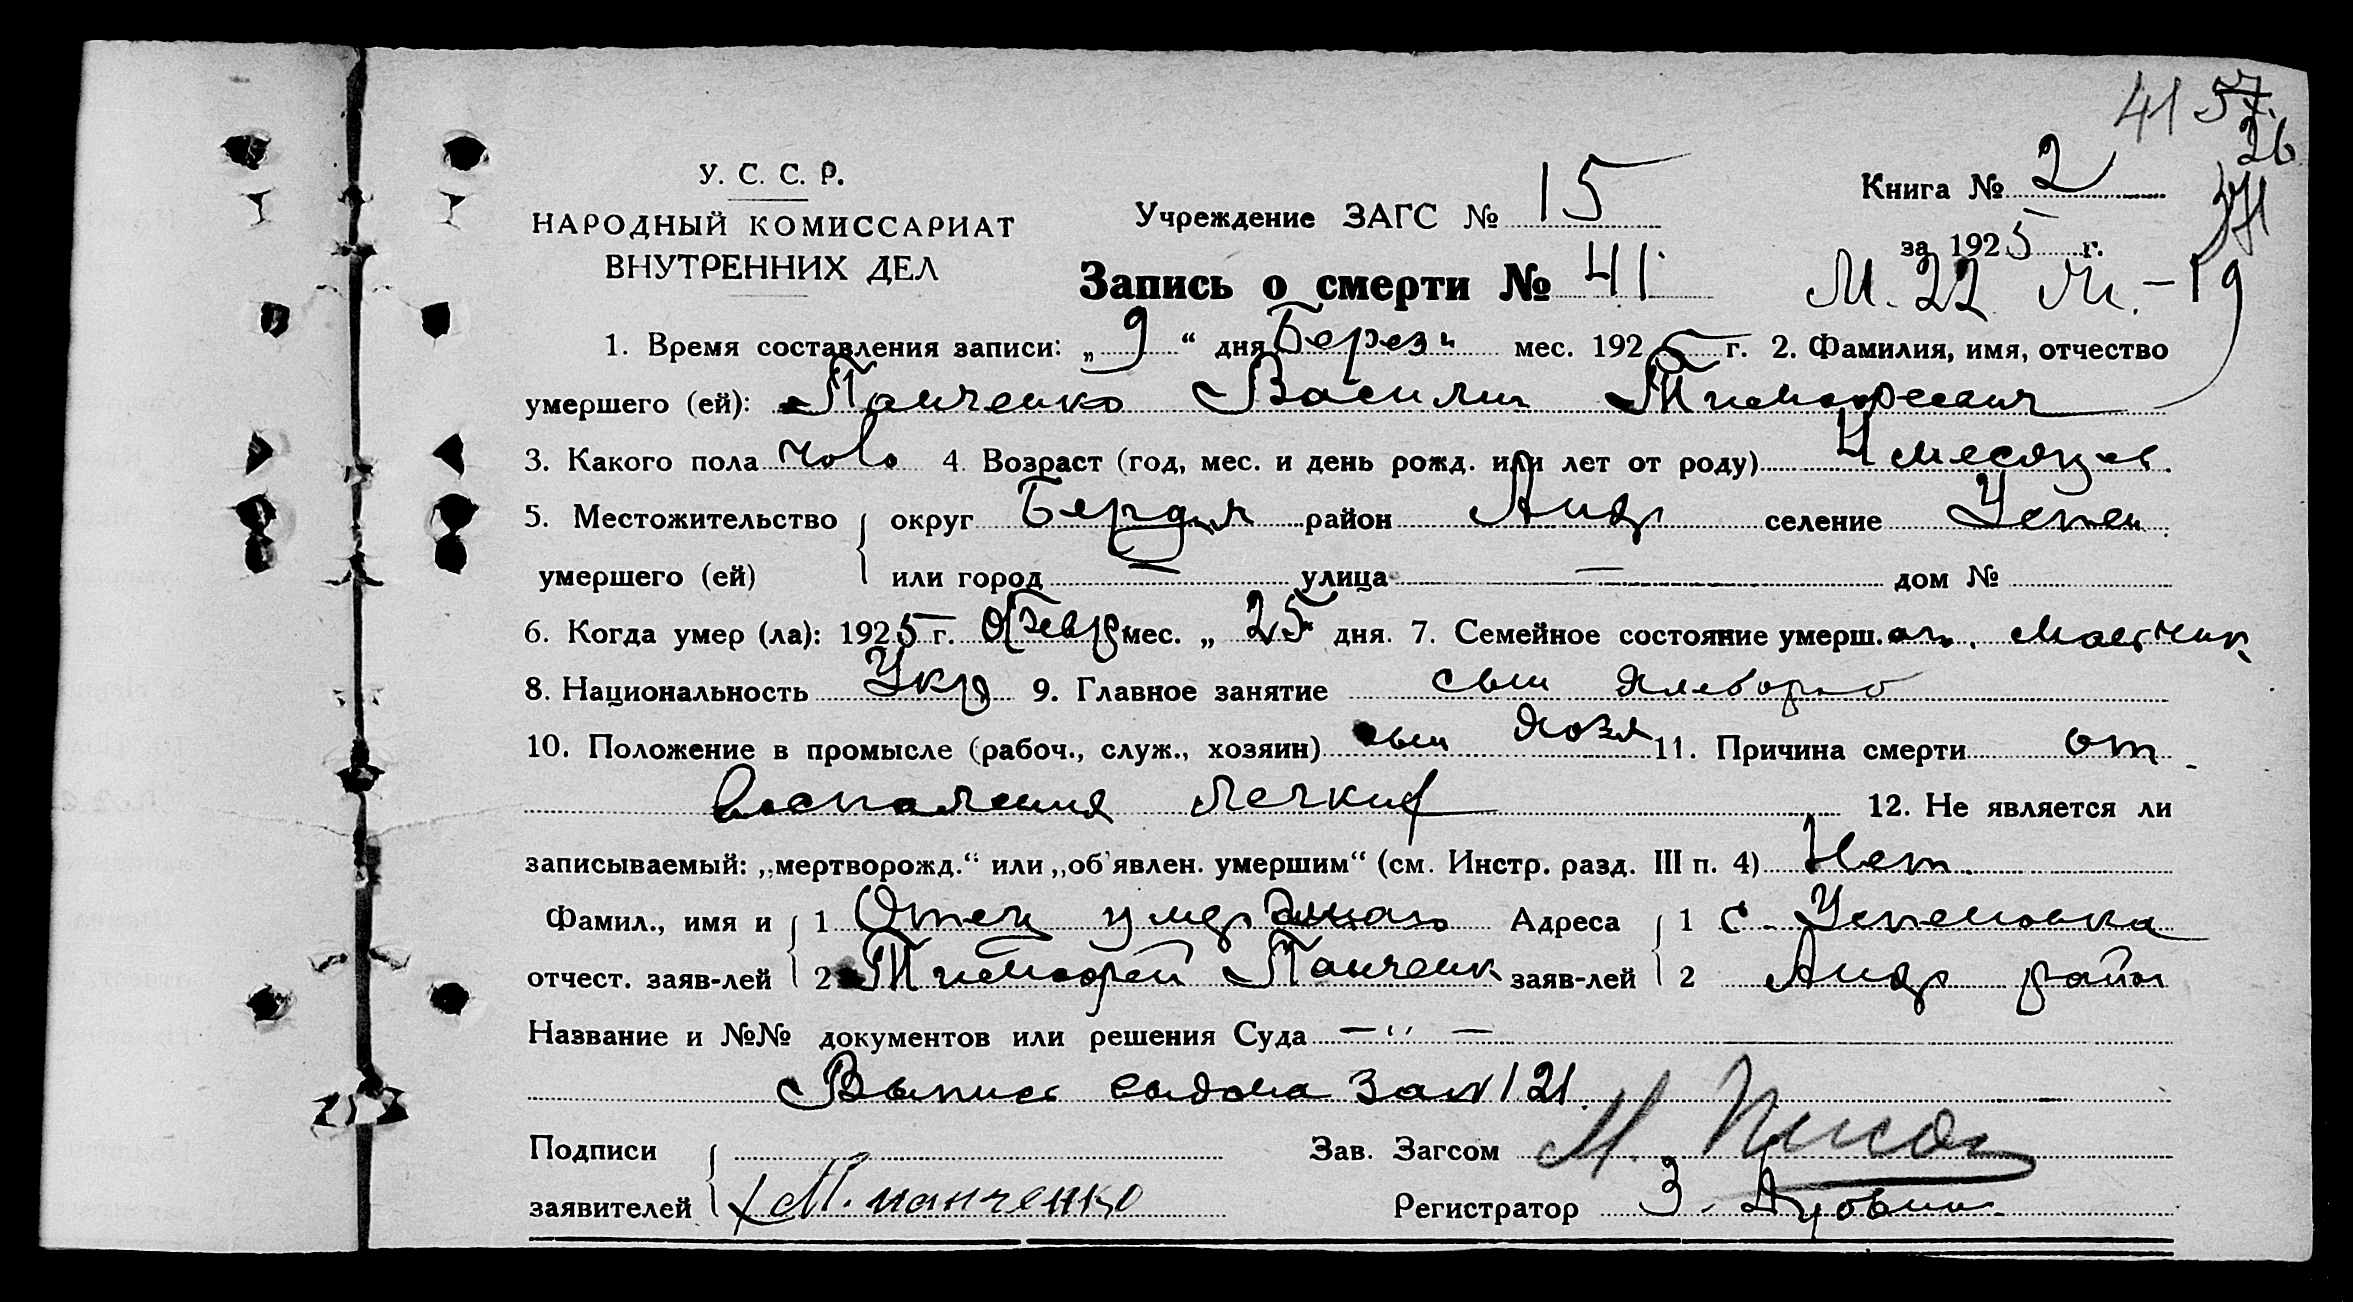 41 57.
26
У. С. С. Р.
НАРОДНЫЙ КОМИССАРИАТ
ВНУТРЕННИХ ДЕЛ
Учреждение ЗАГС № 15
Книга № 2
за 1925 г.
Запись о смерти № 41
М. 22 м. - 19
1. Время составления записи: „ 9 “ дня Берез мес. 1925 г. 2. Фамилия, имя, отчество
умершего (ей): Панченко Василий Тимофеевич
3. Какого пола чолов 4. Возраст (год, мес. и день рожд. или лет от роду) 4 месяцев
5. Местожительство округ Бердян район Андр селение Успен
умершего (ей) или город улица — дом №
6. Когда умер (ла): 1925 г. Февр мес. „ 25 дня. 7. Семейное состояние умерш. мальчик
8. Национальность Укр 9. Главное занятие сын хлебороб
10. Положение в промысле (рабоч., служ., хозяин) сын хозя 11. Причина смерти от
воспаления легких 12. Не является ли
записываемый: „мертворожд.“ или „об'явлен. умершим“ (см. Инстр. разд. III п. 4) Нет
Фамил., имя и 1 Отец умер Адреса 1 с. Успеновка
отчест. заяв-лей 2 Тимофей Панченк заяв-лей 2 Андр район
Название и №№ документов или решения Суда — " —
Выпись выдана за № 121.
Подписи Зав. Загсом М.
заявителей Т. Панченко Регистратор З.